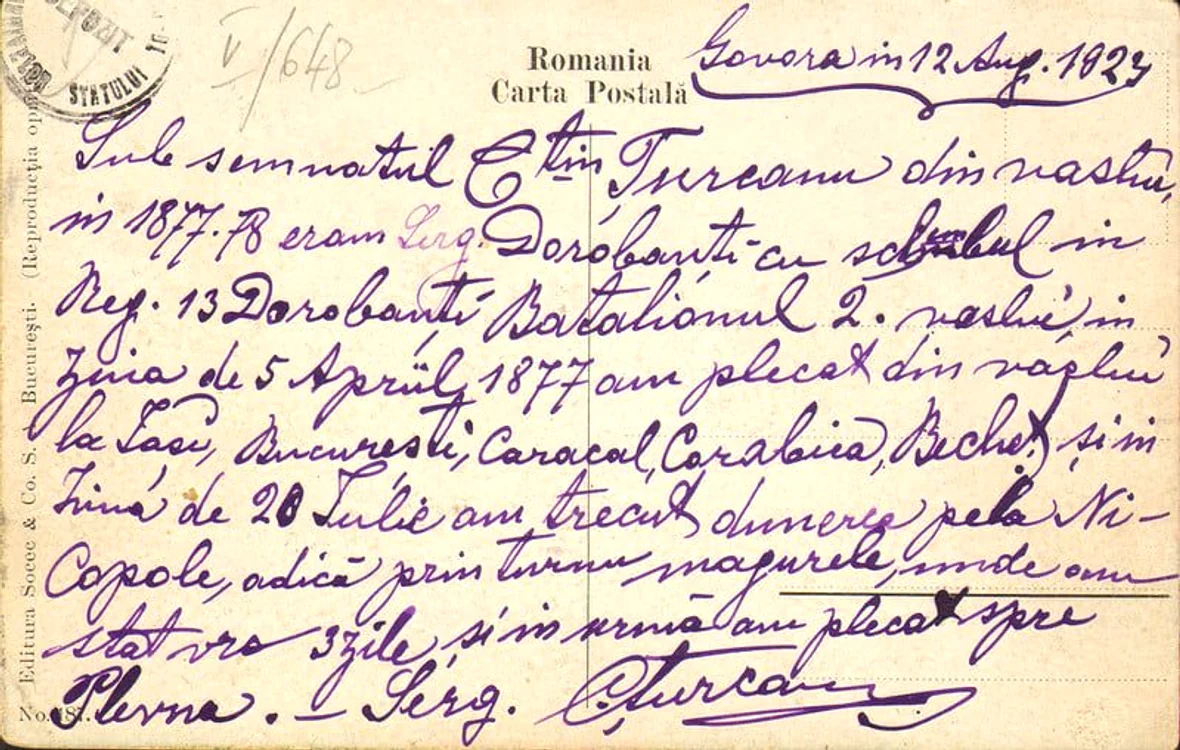 DEPOZIT
STATULUI
V/648
Romania
Carta Postală
Govora in 12 Aug. 1923
Sub semnatul Ctin Turcanu din vaslui,
in 1877.78 eram Serg. Dorobanti cu schimbul in
Reg. 13 Dorobanti Batalionul 2. vaslui, in
Ziua de 5 Apriil 1877 am plecat din vaslui
la Iasi, Bucuresti, Caracal, Corabiea, Bechet, si in
Ziuă de 20 Iulie am trecut dunerea pe la Ni-
Copole, adică prin turnu magurele, unde am
stat vro 3 zile, si in urmă am plecat spre
Plevna. – Serg. CTurcanu
Editura Socec & Co. S. Bucureşti. (Reproducţia
No.